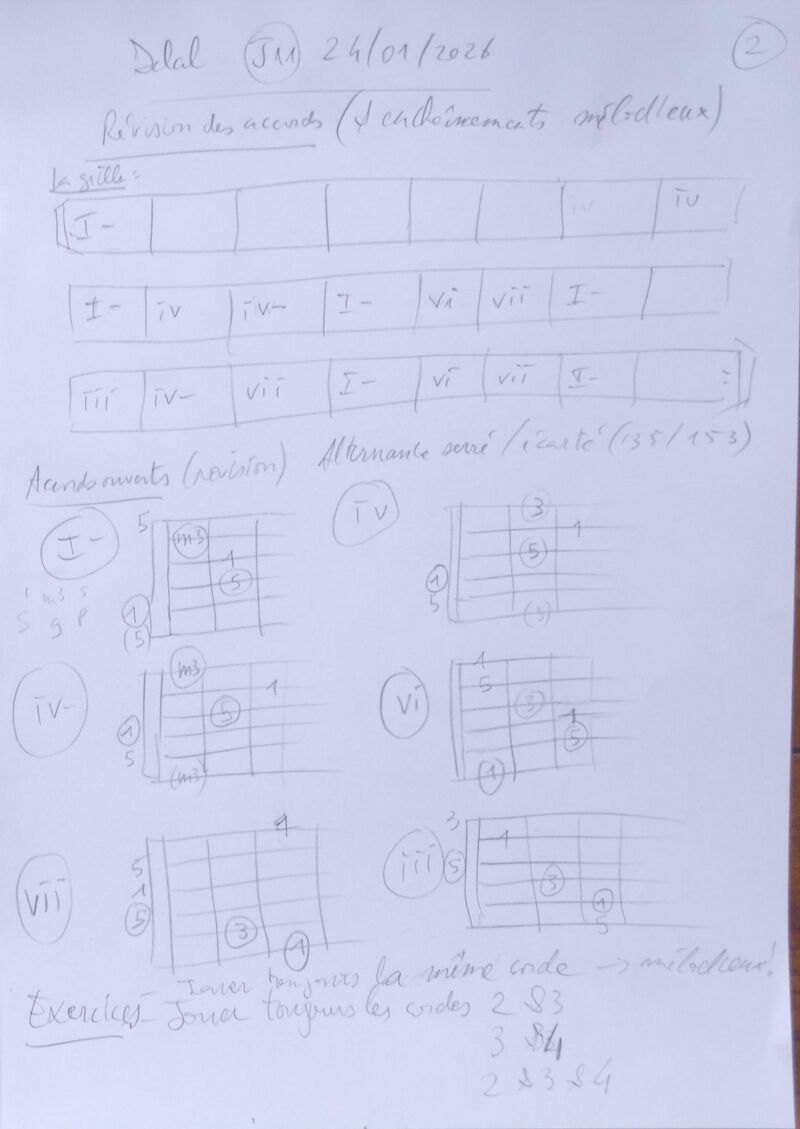 Delal JM 24/01/2026 2
Révision des accords (& enchaînements mélodieux)
La grille :
I- iv iv
I- iv iv- I- vi vii I-
iii iv- vii I- vi vii I-
Accords ouverts (révision) Alternance serré / écarté (135/153)
I- 5 m3 1 5 1 (5)
1 m3 5
S g p
iv 3 1 5 1 5 (3)
iv- m3 1 5 1 5 (m3)
vi 1 5 3 1 5 1
vii 1 5 1 5 3 1
iii 3 1 5 3 1 5
Jouer toujours la même corde → mélodieux!
Exercices - Jouer toujours les cordes 2 & 3
3 & 4
2 & 3 & 4